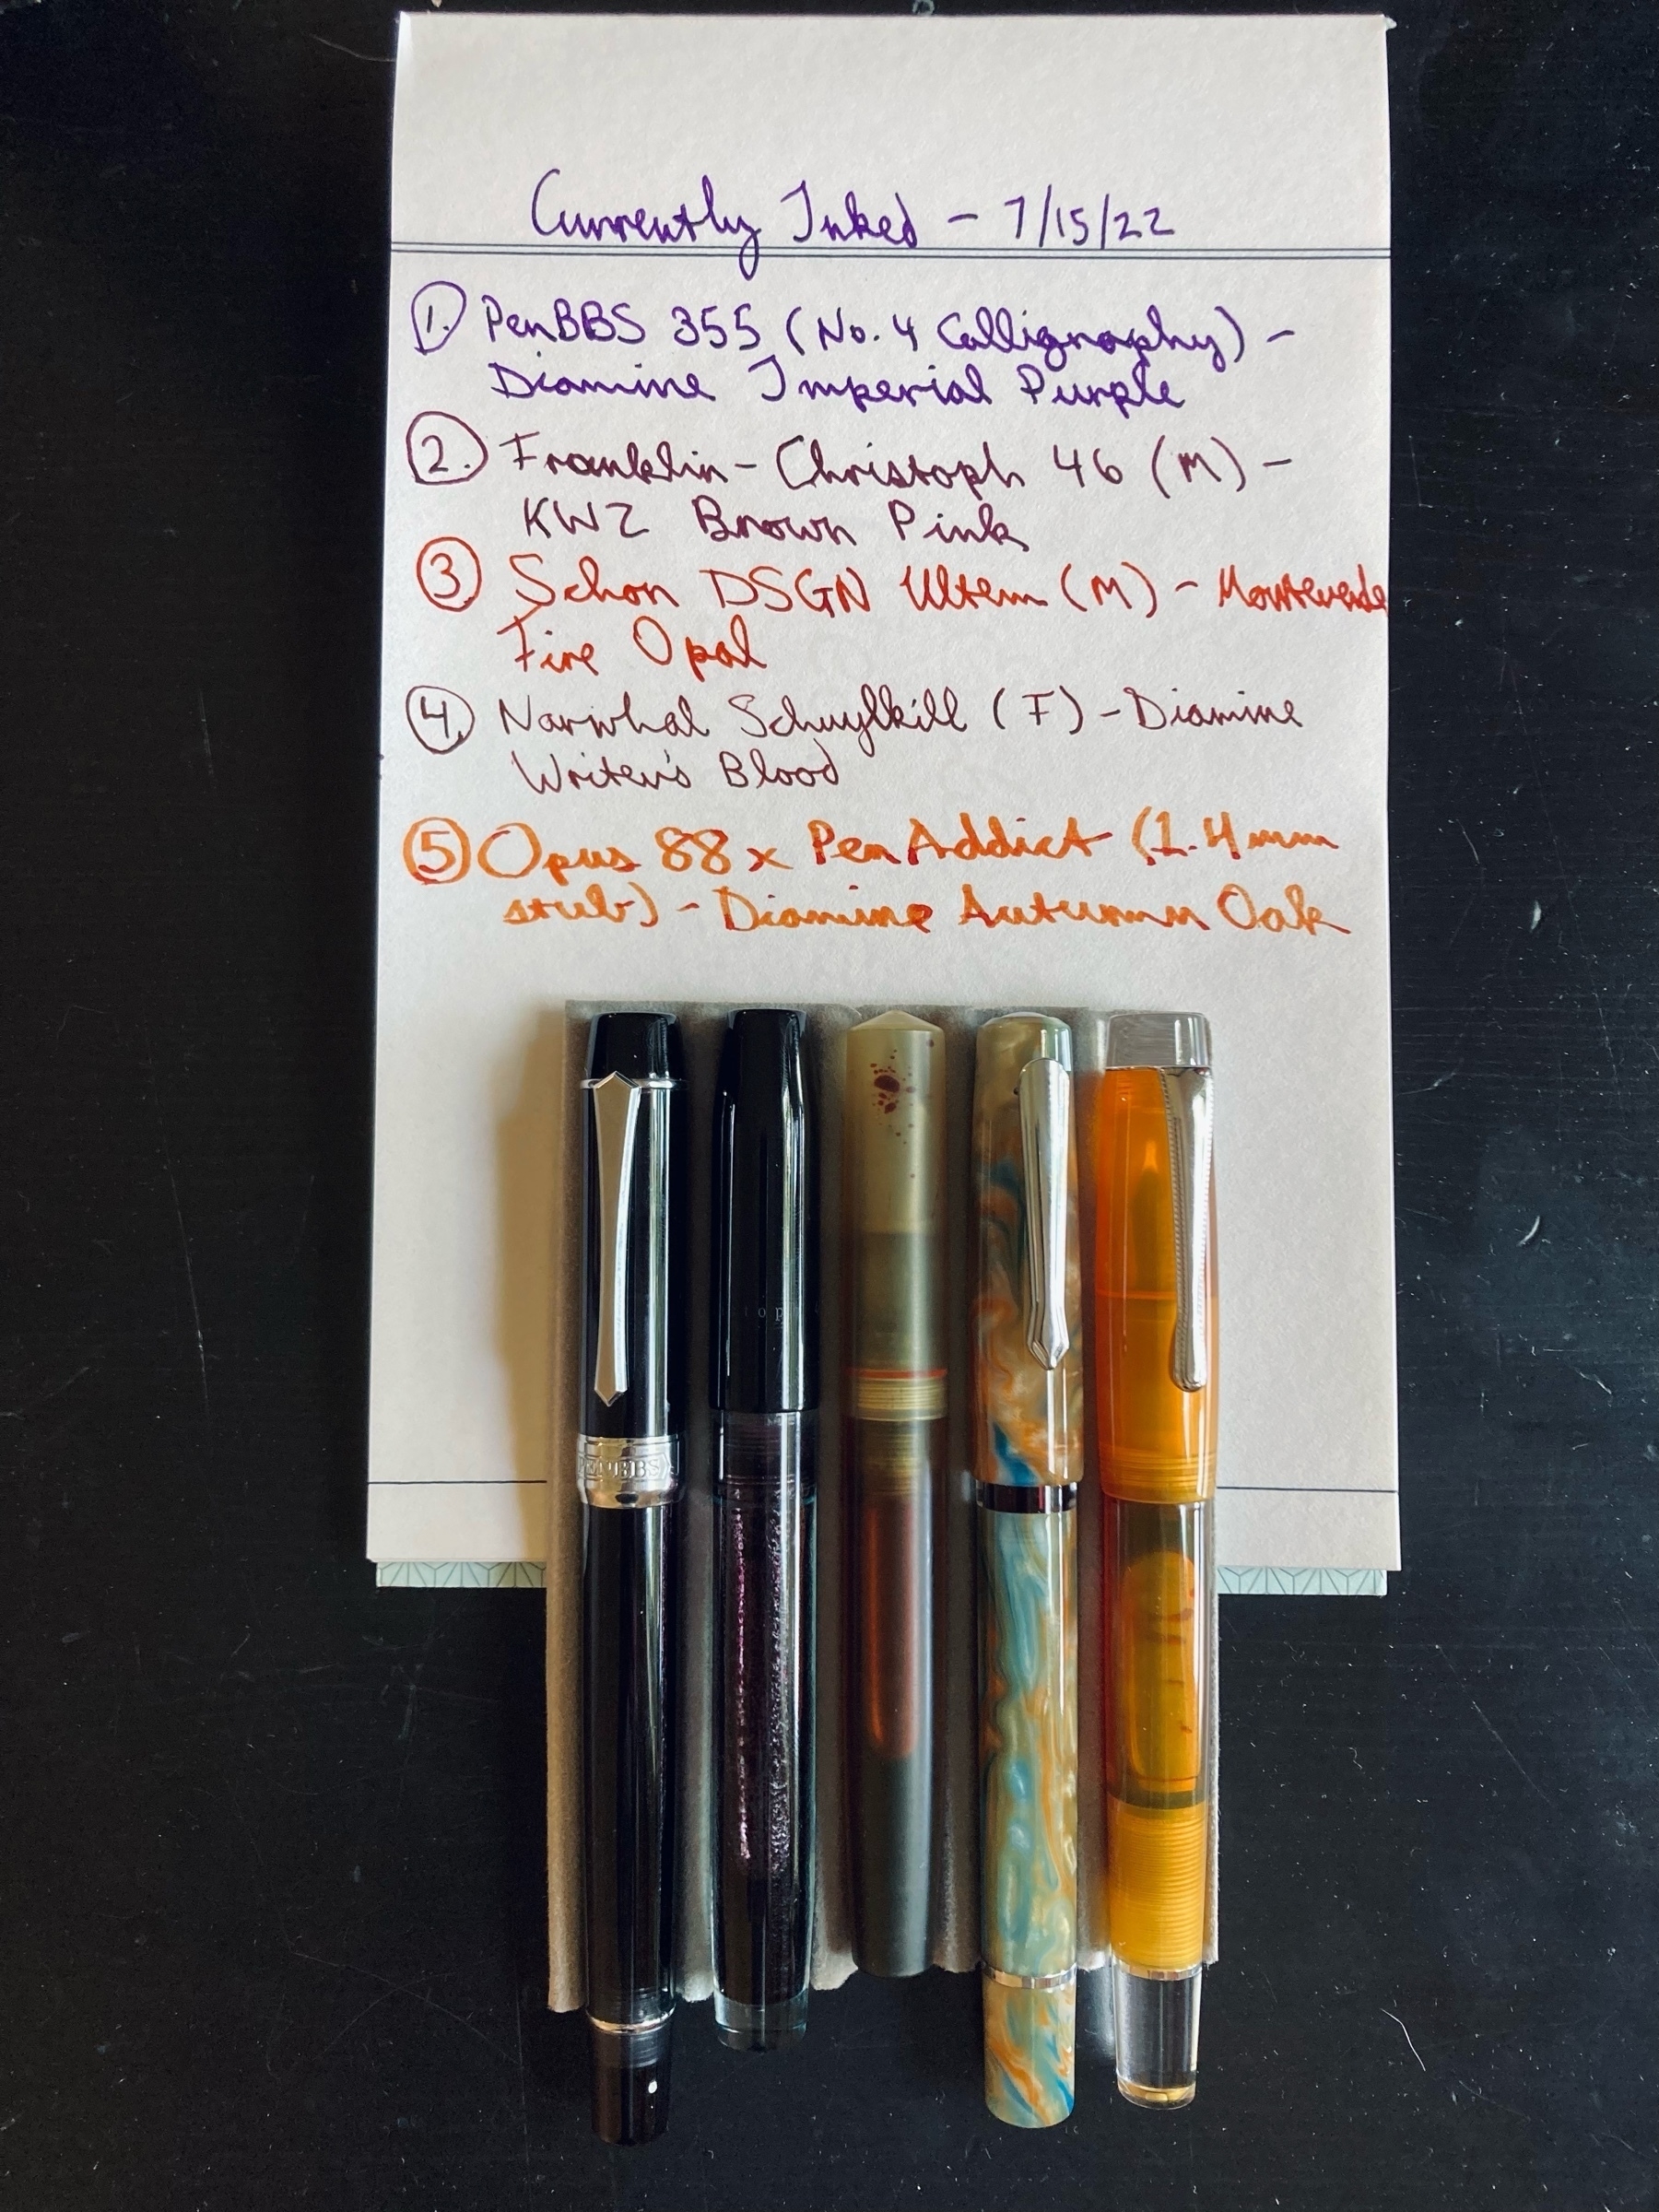 Currently Inked - 7/15/22
1. PenBBS 355 (No. 4 Calligraphy) -
Diamine Imperial Purple
2. Franklin-Christoph 46 (M) -
KWZ Brown Pink
3 Schon DSGN Ultem (M) - Monteverde
Fire Opal
4. Narwhal Schuylkill (F) - Diamine
Writer's Blood
5 Opus 88 x Pen Addict (1.4mm
stub) - Diamine Autumn Oak
PENBBS